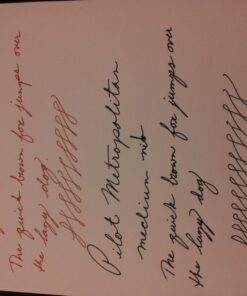 The quick brown fox jumps over
the lazy dog.
Pilot Metropolitan
medium nib
The quick brown fox jumps over
the lazy dog